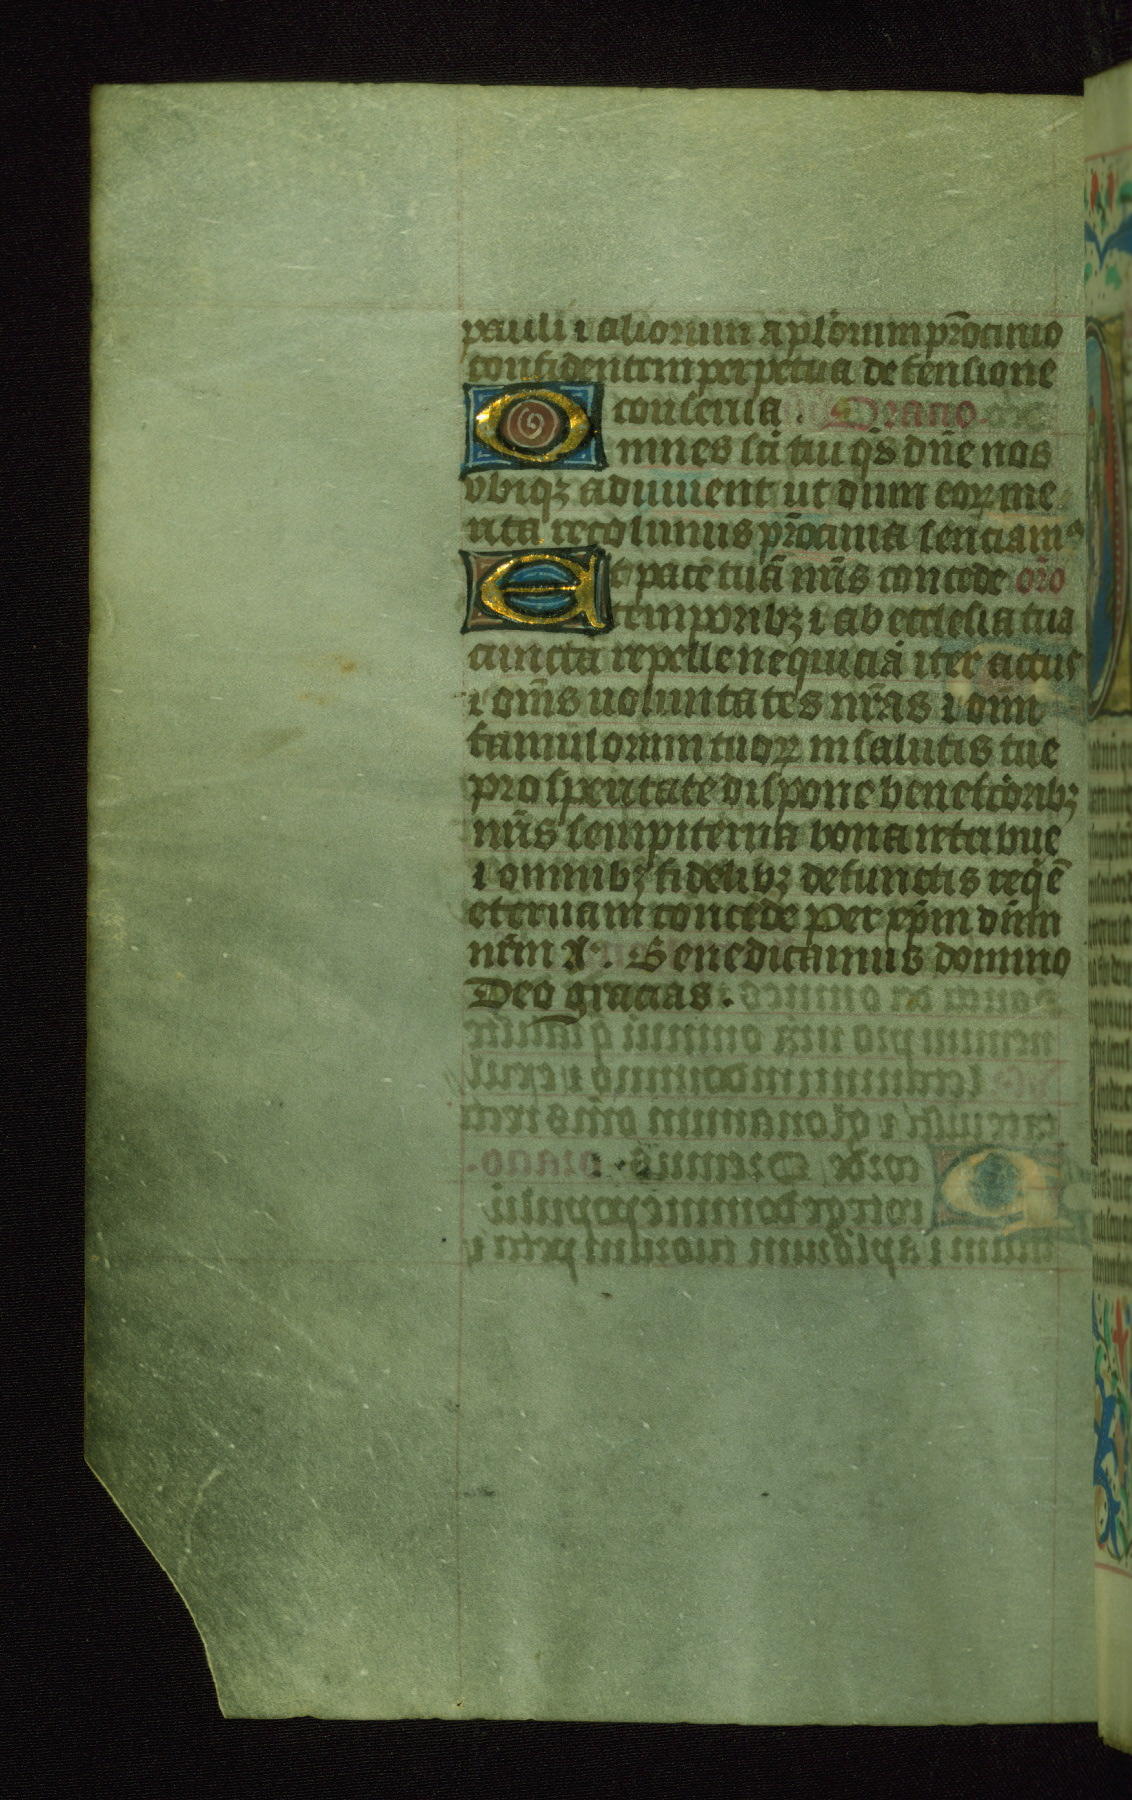 pauli ⁊ aliorum aplꝰorum pr̄ocinio
confidentem perpetua defensione
conserua . Oracio
Omnes sc̄i tui q̄s dn̄e nos
vbiqꝫ adiuuent ut dum eoꝝ me
rita recolimus pr̄ocinia senciamꝰ
Et pacē tuā nr̄is concede or̄o
temporibꝫ ⁊ ab ecclesia tua
cuncta repelle nequiciā iter actus
⁊ om̄s uoluntates nr̄as ⁊ om̄i
famulorum tuoꝝ in salutis tue
prosperitate dispone benefcōribꝫ
nr̄is sempiterna bona retribue
⁊ omnibꝫ fidelibꝫ defunctis reqē
eternam concede Per xp̄m dn̄m
nr̄m A . Benedicamus domino
Deo gracias .